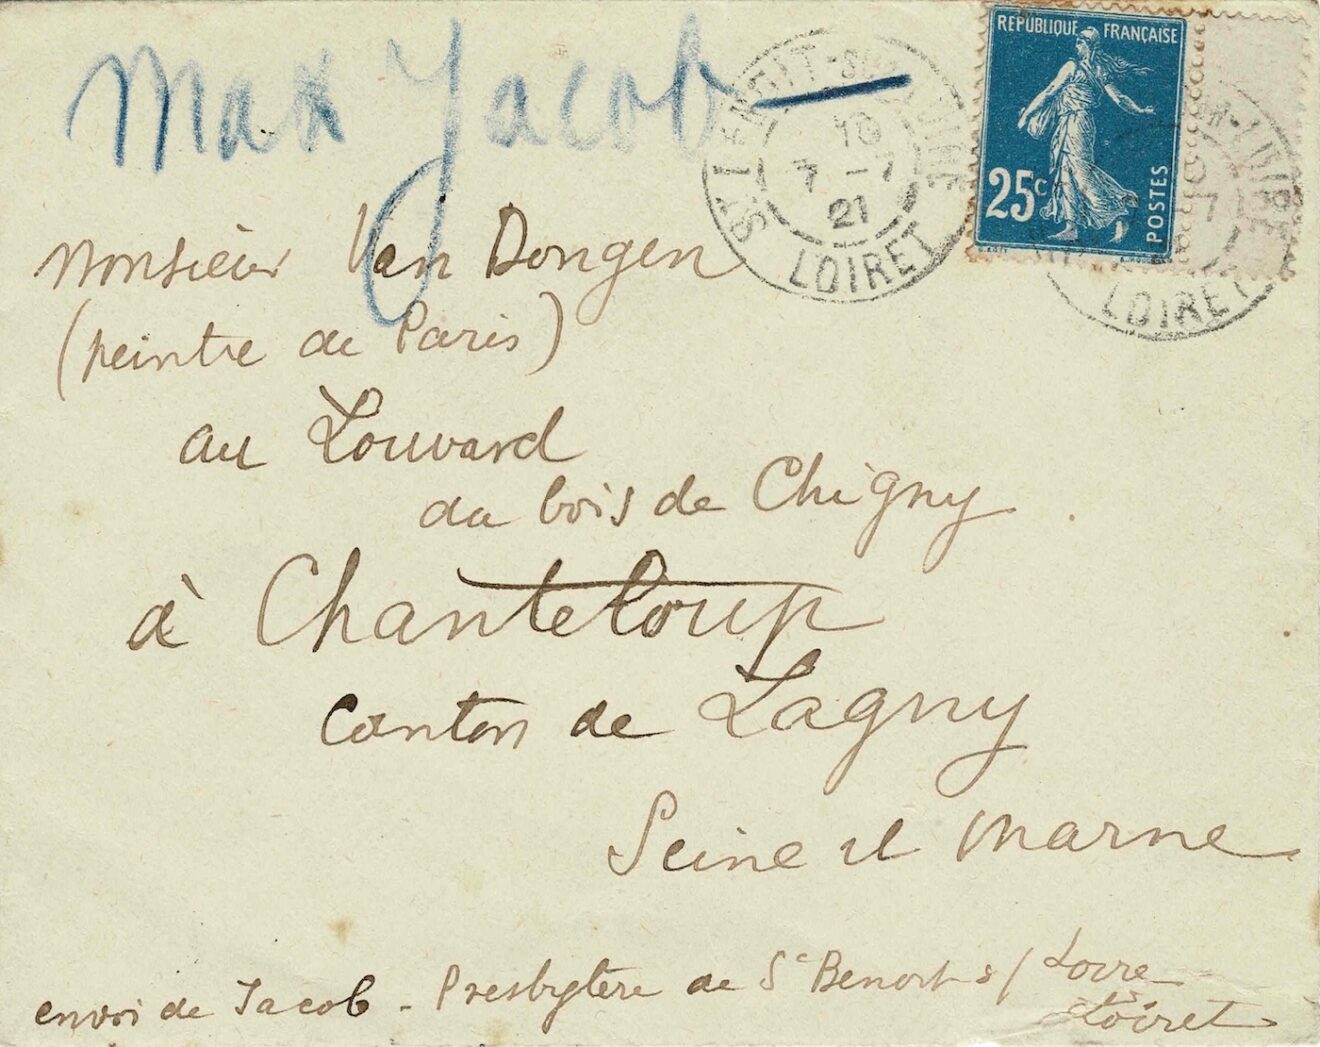 Max Jacob
RÉPUBLIQUE FRANÇAISE
25c
POSTES
ST BENOIT-SUR-LOIRE
10
7 - 7
21
LOIRET
LOIRET
Monsieur Van Dongen
(peintre de Paris)
au Louvard
du bois de Chigny
à Chanteloup
Canton de Lagny
Seine et Marne
envoi de Jacob - Presbytère de St Benoit s/ Loire
Loiret